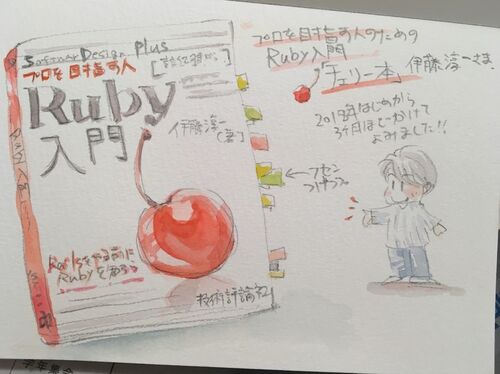 Software Design Plus
プロを目指す人
Ruby
入門
伊藤淳一
(著)
Railsをやる前に
Rubyを知ろう
技術評論社
プロを目指す人のための
Ruby入門
「チェリー本」
伊藤淳一さま
2018年はじめから
3ヶ月ほどかけて
よみました!!
←フセン
つけつつ